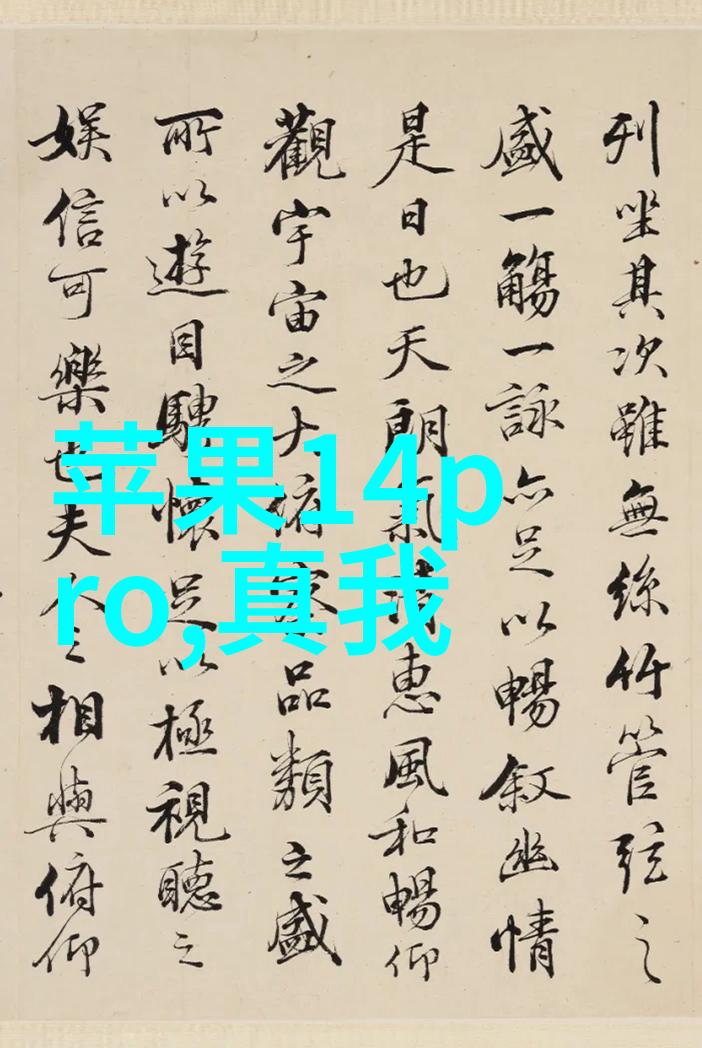 列坐其次雖無絲竹管弦之
盛一觴一詠亦足以暢叙幽情
是日也天朗氣清惠風和暢仰
觀宇宙之大俯察品類之盛
所以遊目騁懷足以極視聽之
娛信可樂也夫人之相與俯仰
苹果14p
ro,真我